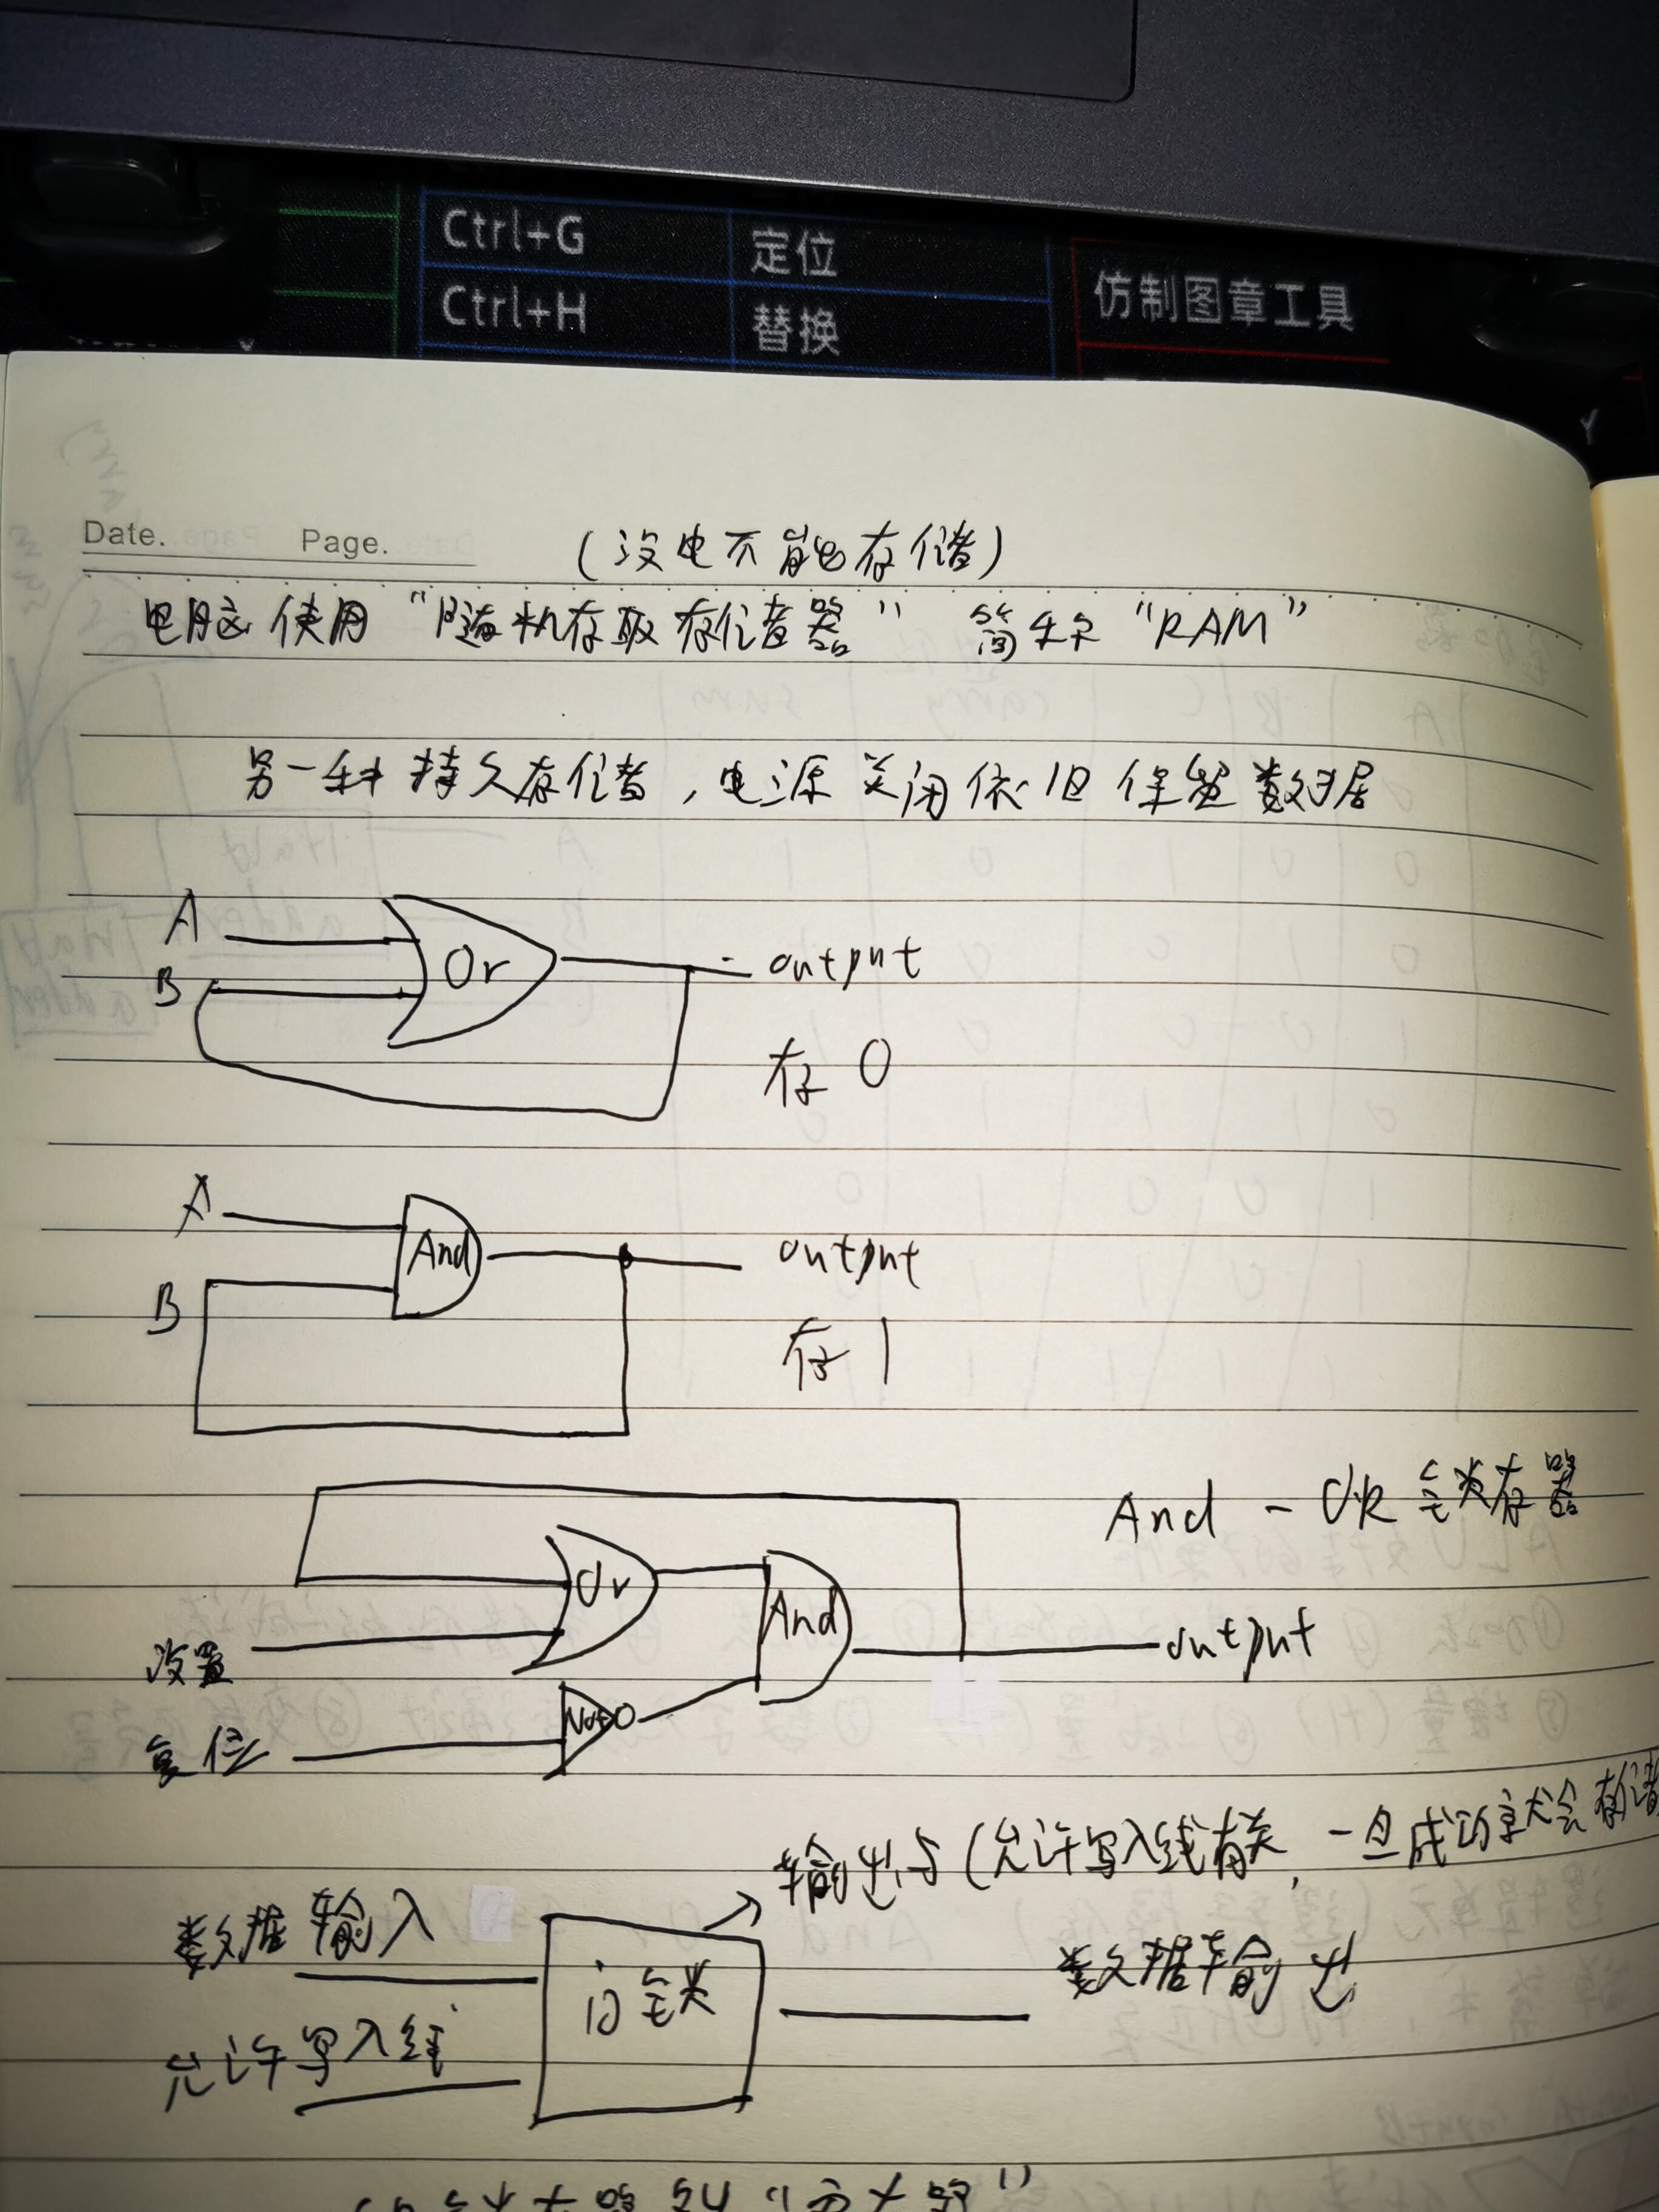 Ctrl+G 定位
Ctrl+H 替换
仿制图章工具
Y
Date. Page.
(没电不能存储)
电脑使用“随机存取存储器” 简称“RAM”
另一种持久存储,电源关闭依旧保留数据
A
B
Or
output
存 0
A
B
And
output
存 1
And - OR 锁存器
Or
And
设置
output
Not
复位
输出与(允许写入线有关,一旦成功就会存储
数据输入
门锁
数据输出
允许写入线